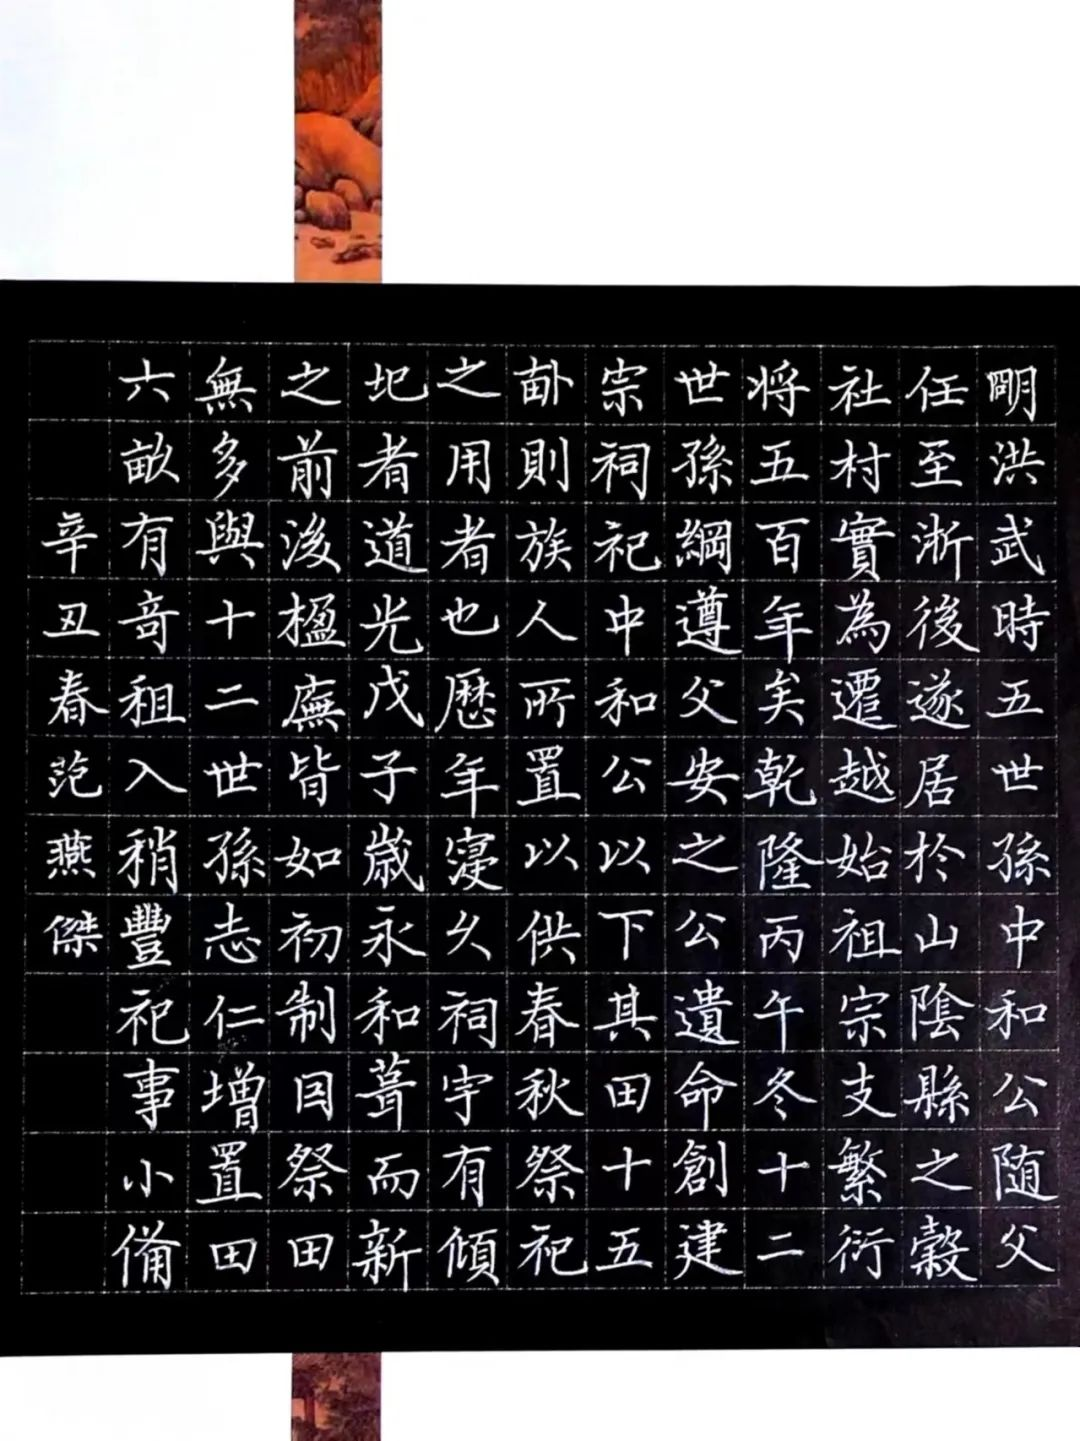 明洪武時五世孫中和公随父
任至淅後遂居扵山陰縣之縠
社村實為遷越始祖宗支繁衍
将五百年矣乾隆丙午冬十二
世孫綱遵父安之公遺命創建
宗祠祀中和公以下其田十五
畝則族人所置以供春秋祭祀
之用者也歷年寖久祠宇有傾
圮者道光戊子歲永和葺而新
之前後楹廡皆如初制因祭田
無多與十二世孫志仁增置田
六畝有奇租入稍豐祀事小備
辛丑春范燕傑